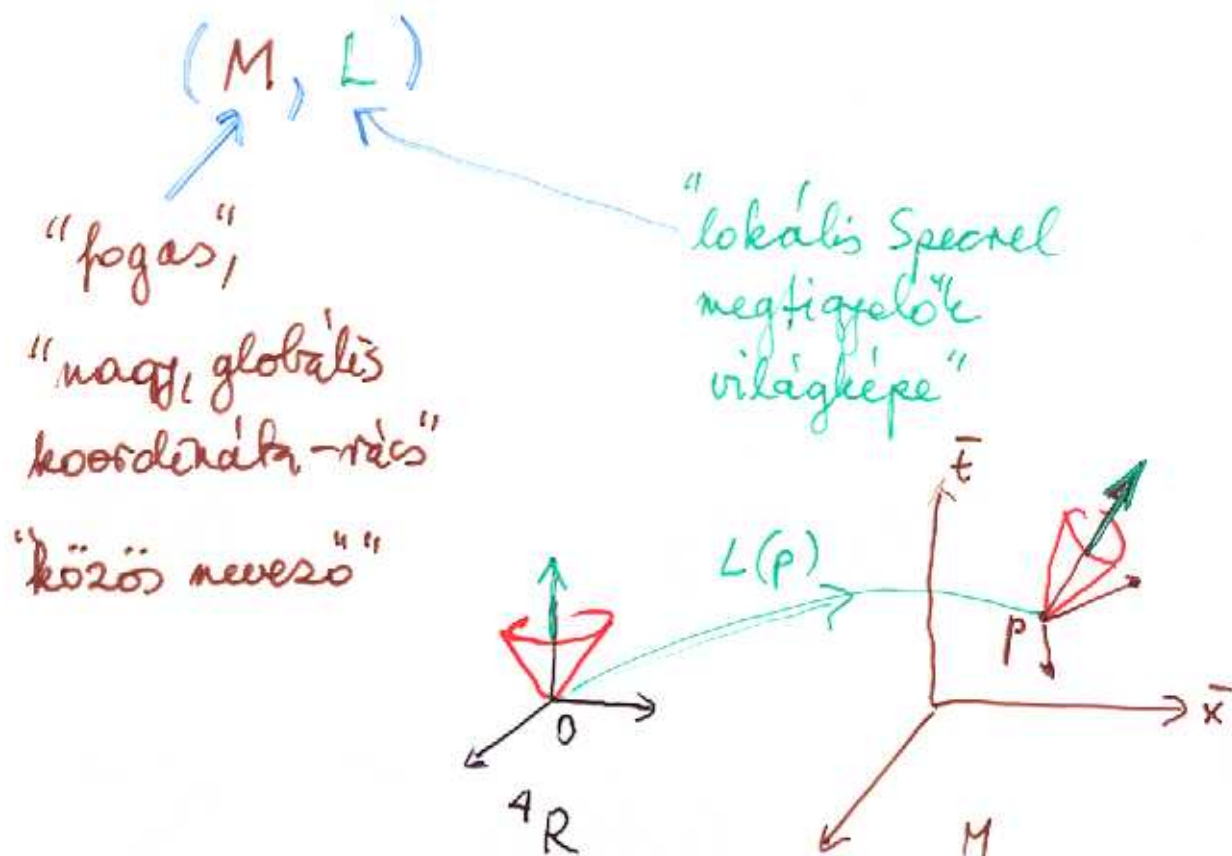 (M, L)
"fogas",
"nagy, globális
koordináta-rács"
"közös nevező"
"lokális Specrel
megfigyelők
világképe"
L(p)
t̄
p
x̄
0
⁴R
M